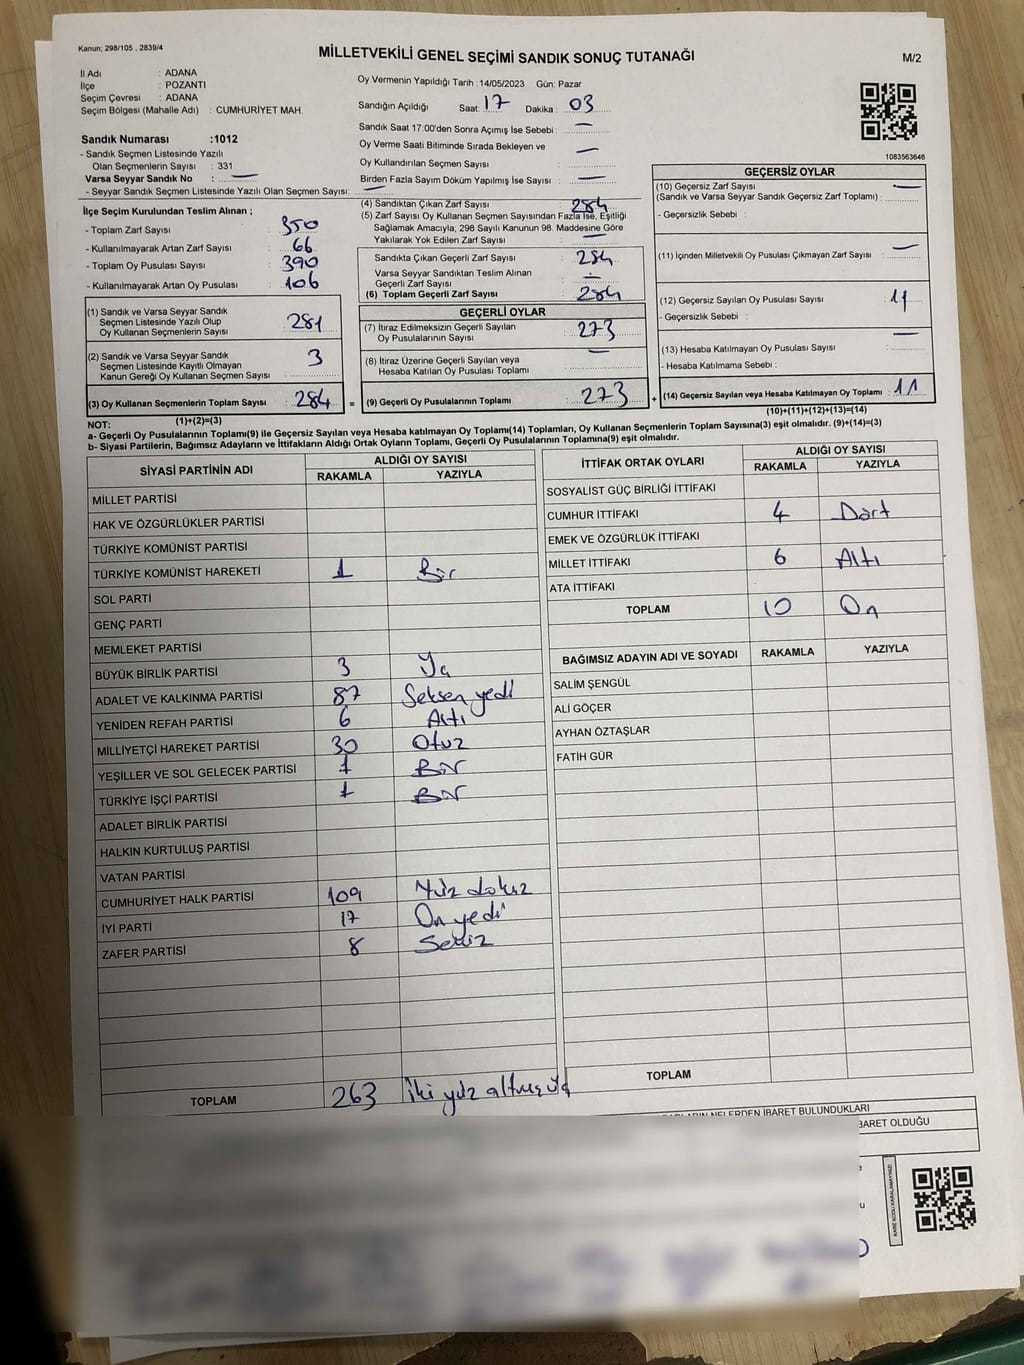 Kanun; 298/105 , 2839/4
MİLLETVEKİLİ GENEL SEÇİMİ SANDIK SONUÇ TUTANAĞI
M/2
İl Adı : ADANA
İlçe : POZANTI
Seçim Çevresi : ADANA
Seçim Bölgesi (Mahalle Adı) : CUMHURİYET MAH.
Sandık Numarası :1012
- Sandık Seçmen Listesinde Yazılı
Olan Seçmenlerin Sayısı : 331
Varsa Seyyar Sandık No : —
- Seyyar Sandık Seçmen Listesinde Yazılı Olan Seçmen Sayısı: —
Oy Vermenin Yapıldığı Tarih :14/05/2023 Gün: Pazar
Sandığın Açıldığı Saat: 17 Dakika : 03
Sandık Saat 17:00'den Sonra Açımış İse Sebebi : —
Oy Verme Saati Bitiminde Sırada Bekleyen ve
Oy Kullandırılan Seçmen Sayısı : —
Birden Fazla Sayım Döküm Yapılmış İse Sayısı : —
1083563646
İlçe Seçim Kurulundan Teslim Alınan ;
- Toplam Zarf Sayısı : 350
- Kullanılmayarak Artan Zarf Sayısı : 66
- Toplam Oy Pusulası Sayısı : 390
- Kullanılmayarak Artan Oy Pusulası : 106
(1) Sandık ve Varsa Seyyar Sandık
Seçmen Listesinde Yazılı Olup
Oy Kullanan Seçmenlerin Sayısı : 281
(2) Sandık ve Varsa Seyyar Sandık
Seçmen Listesinde Kayıtlı Olmayan
Kanun Gereği Oy Kullanan Seçmen Sayısı : 3
(3) Oy Kullanan Seçmenlerin Toplam Sayısı : 284
(1)+(2)=(3)
(4) Sandıktan Çıkan Zarf Sayısı : 284
(5) Zarf Sayısı Oy Kullanan Seçmen Sayısından Fazla İse, Eşitliği
Sağlamak Amacıyla; 298 Sayılı Kanunun 98. Maddesine Göre
Yakılarak Yok Edilen Zarf Sayısı : —
Sandıkta Çıkan Geçerli Zarf Sayısı : 284
Varsa Seyyar Sandıktan Teslim Alınan
Geçerli Zarf Sayısı : —
(6) Toplam Geçerli Zarf Sayısı : 284
GEÇERLİ OYLAR
(7) İtiraz Edilmeksizin Geçerli Sayılan
Oy Pusulalarının Sayısı : 273
(8) İtiraz Üzerine Geçerli Sayılan veya
Hesaba Katılan Oy Pusulası Toplamı : —
= (9) Geçerli Oy Pusulalarının Toplamı : 273
GEÇERSİZ OYLAR
(10) Geçersiz Zarf Sayısı
(Sandık ve Varsa Seyyar Sandık Geçersiz Zarf Toplamı) : —
- Geçersizlik Sebebi :
(11) İçinden Milletvekili Oy Pusulası Çıkmayan Zarf Sayısı : —
(12) Geçersiz Sayılan Oy Pusulası Sayısı : 11
- Geçersizlik Sebebi :
(13) Hesaba Katılmayan Oy Pusulası Sayısı : —
- Hesaba Katılmama Sebebi :
+ (14) Geçersiz Sayılan veya Hesaba Katılmayan Oy Toplamı : 11
(10)+(11)+(12)+(13)=(14)
NOT:
a- Geçerli Oy Pusulalarının Toplamı(9) ile Geçersiz Sayılan veya Hesaba Katılmayan Oy Toplamı(14) Toplamları, Oy Kullanan Seçmenlerin Toplam Sayısına(3) eşit olmalıdır. (9)+(14)=(3)
b- Siyasi Partilerin, Bağımsız Adayların ve İttifakların Aldığı Ortak Oyların Toplamı, Geçerli Oy Pusulalarının Toplamına(9) eşit olmalıdır.
SİYASİ PARTİNİN ADI ALDIĞI OY SAYISI
RAKAMLA YAZIYLA
MİLLET PARTİSİ
HAK VE ÖZGÜRLÜKLER PARTİSİ
TÜRKİYE KOMÜNİST PARTİSİ
TÜRKİYE KOMÜNİST HAREKETİ 1 Bir
SOL PARTİ
GENÇ PARTİ
MEMLEKET PARTİSİ
BÜYÜK BİRLİK PARTİSİ 3
ADALET VE KALKINMA PARTİSİ 87 Seksen yedi
YENİDEN REFAH PARTİSİ 6 Altı
MİLLİYETÇİ HAREKET PARTİSİ 30 Otuz
YEŞİLLER VE SOL GELECEK PARTİSİ 1 Bir
TÜRKİYE İŞÇİ PARTİSİ 1 Bir
ADALET BİRLİK PARTİSİ
HALKIN KURTULUŞ PARTİSİ
VATAN PARTİSİ
CUMHURİYET HALK PARTİSİ 109 Yüz dokuz
İYİ PARTİ 17 On yedi
ZAFER PARTİSİ 8 Sekiz
TOPLAM 263 İki yüz altmış üç
İTTİFAK ORTAK OYLARI ALDIĞI OY SAYISI
RAKAMLA YAZIYLA
SOSYALİST GÜÇ BİRLİĞİ İTTİFAKI
CUMHUR İTTİFAKI 4 Dört
EMEK VE ÖZGÜRLÜK İTTİFAKI
MİLLET İTTİFAKI 6 Altı
ATA İTTİFAKI
TOPLAM 10 On
BAĞIMSIZ ADAYIN ADI VE SOYADI RAKAMLA YAZIYLA
SALİM ŞENGÜL
ALİ GÖÇER
AYHAN ÖZTAŞLAR
FATİH GÜR
TOPLAM
NELERDEN İBARET BULUNDUKLARI
BARET OLDUĞU
KARE KODU KARALAMAYINIZ!